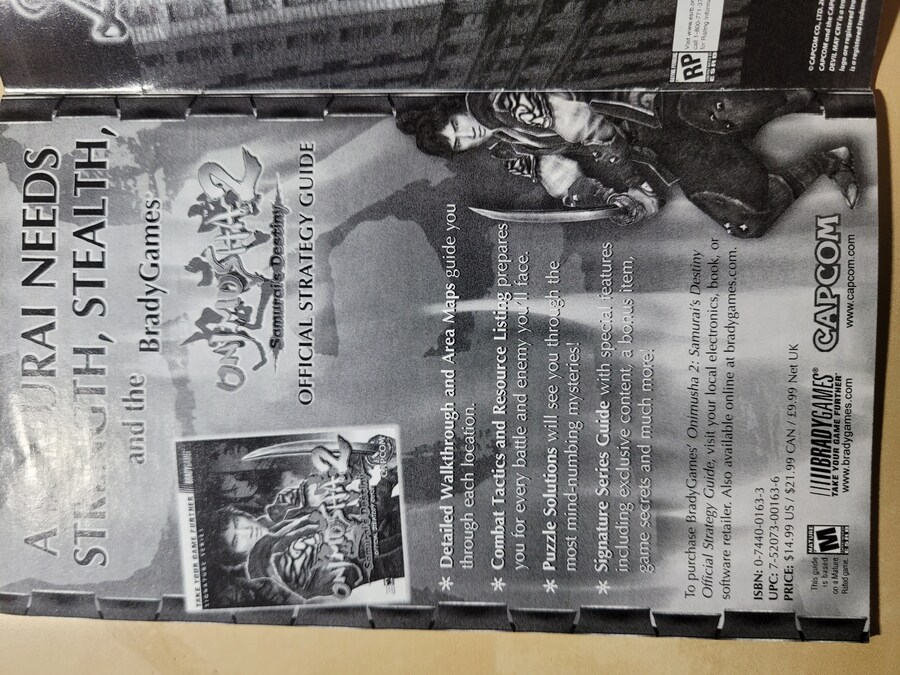 A SAMURAI NEEDS
STRENGTH, STEALTH,
and the BradyGames®
ONIMUSHA 2
Samurai's Destiny
OFFICIAL STRATEGY GUIDE
TAKE YOUR GAME FURTHER
SIGNATURE SERIES
ONIMUSHA 2
Samurai's Destiny
CAPCOM
* Detailed Walkthrough and Area Maps guide you
through each location.
* Combat Tactics and Resource Listing prepares
you for every battle and enemy you'll face.
* Puzzle Solutions will see you through the
most mind-numbing mysteries!
* Signature Series Guide with special features
including exclusive content, a bonus item,
game secrets and much more!
To purchase BradyGames' Onimusha 2: Samurai's Destiny
Official Strategy Guide, visit your local electronics, book, or
software retailer. Also available online at bradygames.com.
ISBN: 0-7440-0163-3
UPC: 7-52073-00163-6
PRICE: $14.99 US / $21.99 CAN / £9.99 Net UK
MATURE
M
This guide
is based
on a Mature
Rated game.
BRADYGAMES®
TAKE YOUR GAME FURTHER®
www.bradygames.com
CAPCOM
www.capcom.com
RP
Visit www.esrb.or
call 1-800-771-37
for Rating Inform
©CAPCOM CO., LTD. 20
CAPCOM and the CAPC
DEVIL MAY CRY is a tra
logo are registered trad
is a registered tradema